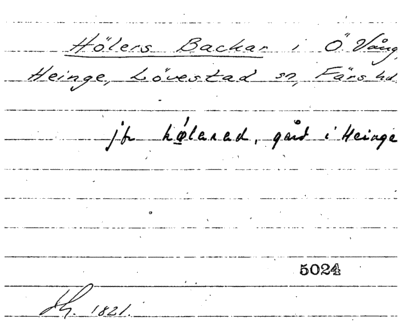 Hölers Backar i Ö. Vång,
Heinge, Lövestad sn, Färs hd.
jfr hølarad, gård i Heinge
5024
1821.